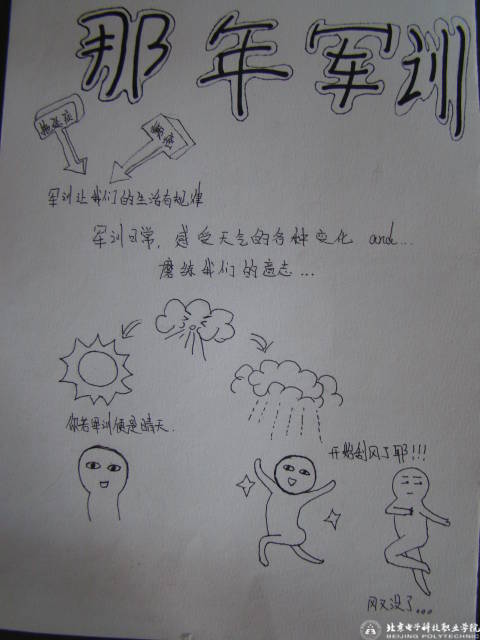 那年军训
军训让我们的生活有规律
军训日常，感受天气的各种变化 and...
磨练我们的意志...
你若军训便是晴天.
开始刮风了耶!!!
风又没了...
北京电子科技职业学院
BEIJING POLYTECHNIC